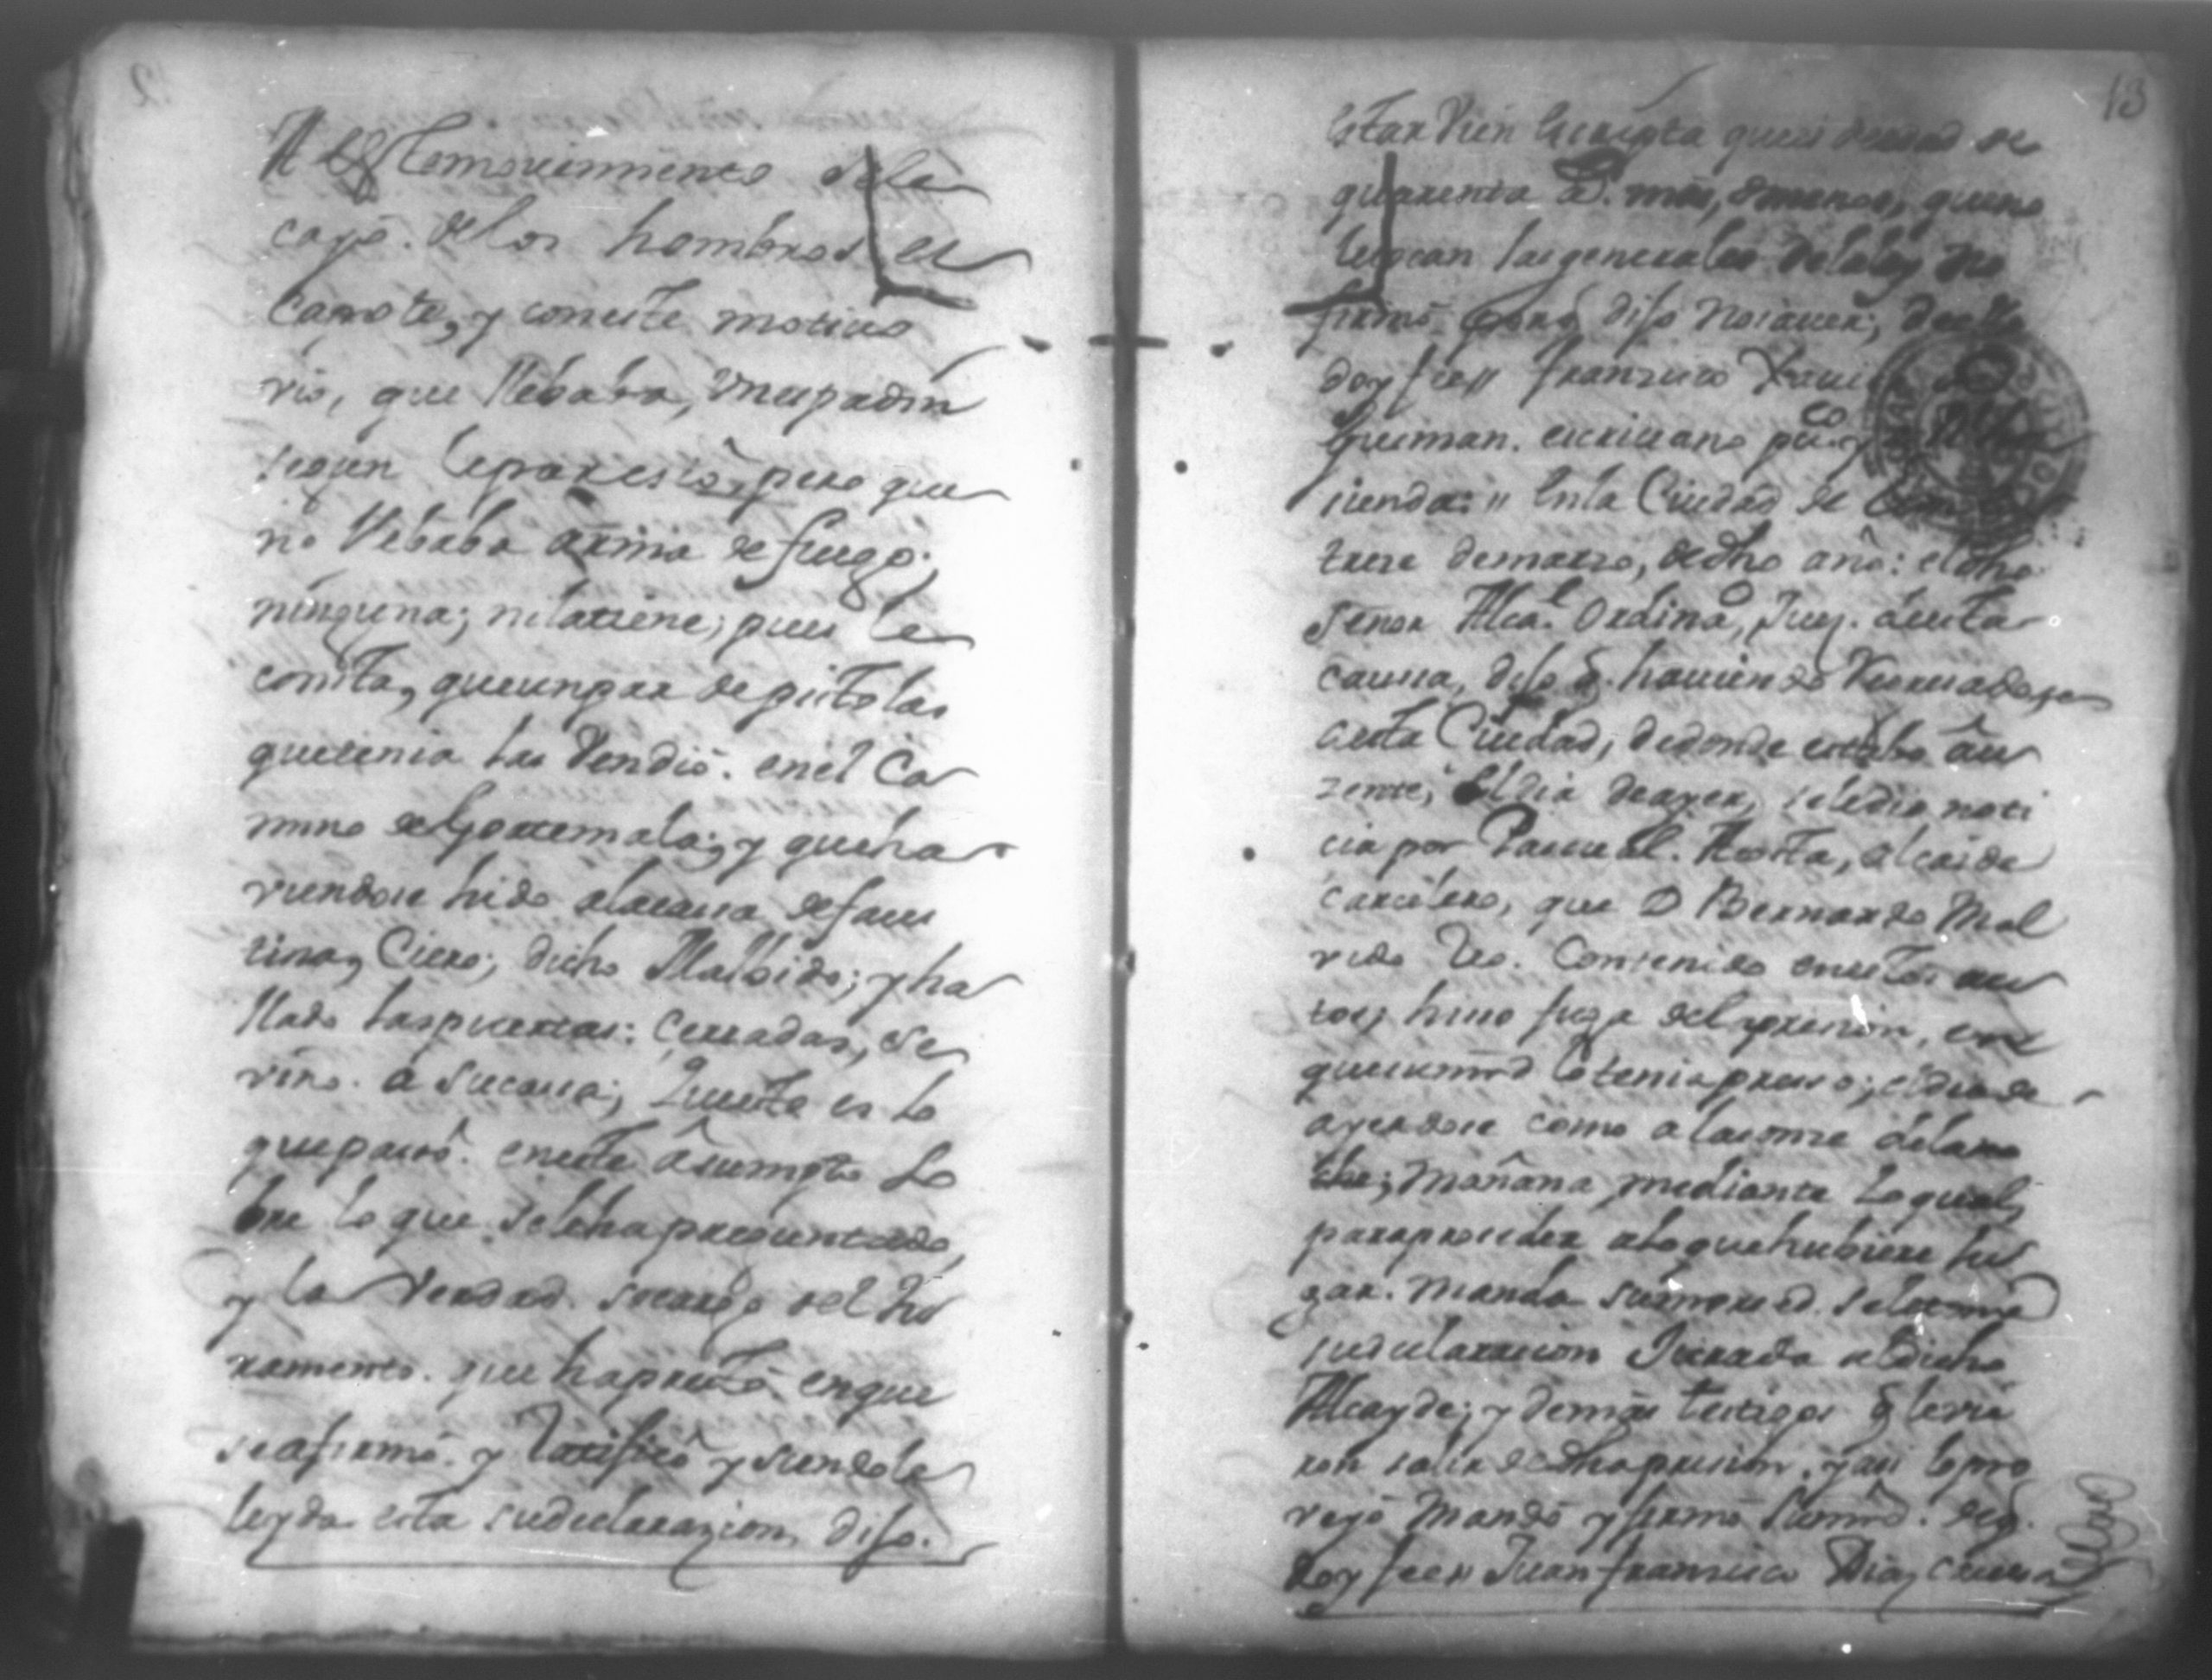 A este movimiento se le
cayo. de los hombros el
Capote, y con este motivo
vio, que llebaba, un espadin
segun le paresio, pero que
no llebaba arma de fuego
ninguna; ni la tiene; pues le
consta, que un par de pistolas
que tenia las vendio. en el Ca
mino de Goattemala; y que ha
viendose hido a la casa de faus
tina, Ciero; dicho Malbido; y ha
llado las puertas: cerradas, se
vino. a su casa; Que esta es lo
que paso. en este asumpto so
bre lo que se le ha preguntado,
y la verdad. so cargo del Ju
ramento. que ha prestado en que
se afirmó. y ratificó y siendole
leyda esta su declarazion, dijo.
13
estar vien escripta que es de edad de
quarenta a.s mas, o menos, que no
le tocan las generales de la ley no
firmó porq dijo no saver; de
doy fee// Fransisco Xavier
Gusman. escrivano pu.co y
sienda: // En la Ciudad de
trese de marzo, de dho año: el dho
señor Alca.l Ordina.o, Juez. de esta
caussa, dijo q. haviendo
a esta Ciudad, de donde estaba au
zente, el dia de ayer, se le dio noti
cia por Pasqual. Acosta, alcaide
carcelero, que D Bernardo Mal
vido Reo. Contenido en estos au
tos; hiso fuga de la prision, en
que su mrd lo tenia preso; el dia de
ayer dose como a las onse de la
mañana mediante lo qual,
para proseder a lo que hubiere lu
gar. manda su mersed. se le tome
su declarasion Jurada al dicho
Alcayde; y demas testigos q le vie
ron salir de dha prision. y asi lo pro
veyó mandó y firmó su mrd. de q.
doy fee// Juan fransisco Dias